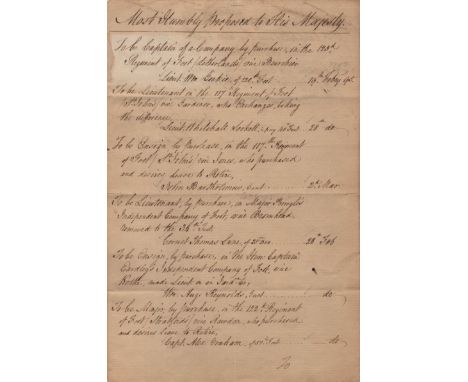 Most Humbly Proposed to His Majesty.
To be Captain of a Company by purchase, in the
Regiment of Foot vice
Lieut. Wm of Foot 19th
To be Lieutenant in the 117th Regiment of Foot
St Johns vice Gardener, who Exchanges, taking
the difference,
Lieut. Whitehall from Foot 28th do
To be Ensign by Purchase, in the 117th Regiment
of Foot St Johns vice Jones, who purchased
and desires leave to Retire,
John Bartholomew, Gent 2d Mar
To be Lieutenant, by purchase, in Major
Independent Company of Foot, vice
removed to the 36th Foot
Cornet Thomas Lane, of 28th Feb
To be Ensign, by purchase, in the Hon. Captain
Independent Company of Foot, vice
made Lieut in
Wm Aug: Reynolds, Gent do
To be Major by purchase in the 122d Regiment
of Foot vice who purchased
and desires leave to Retire,
Capt. Alex Graham of Foot do
To